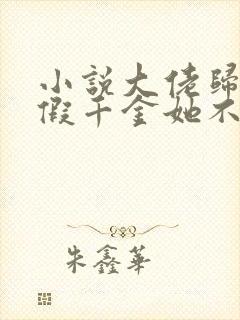 小說大佬歸
假千金她不
朱鑫華